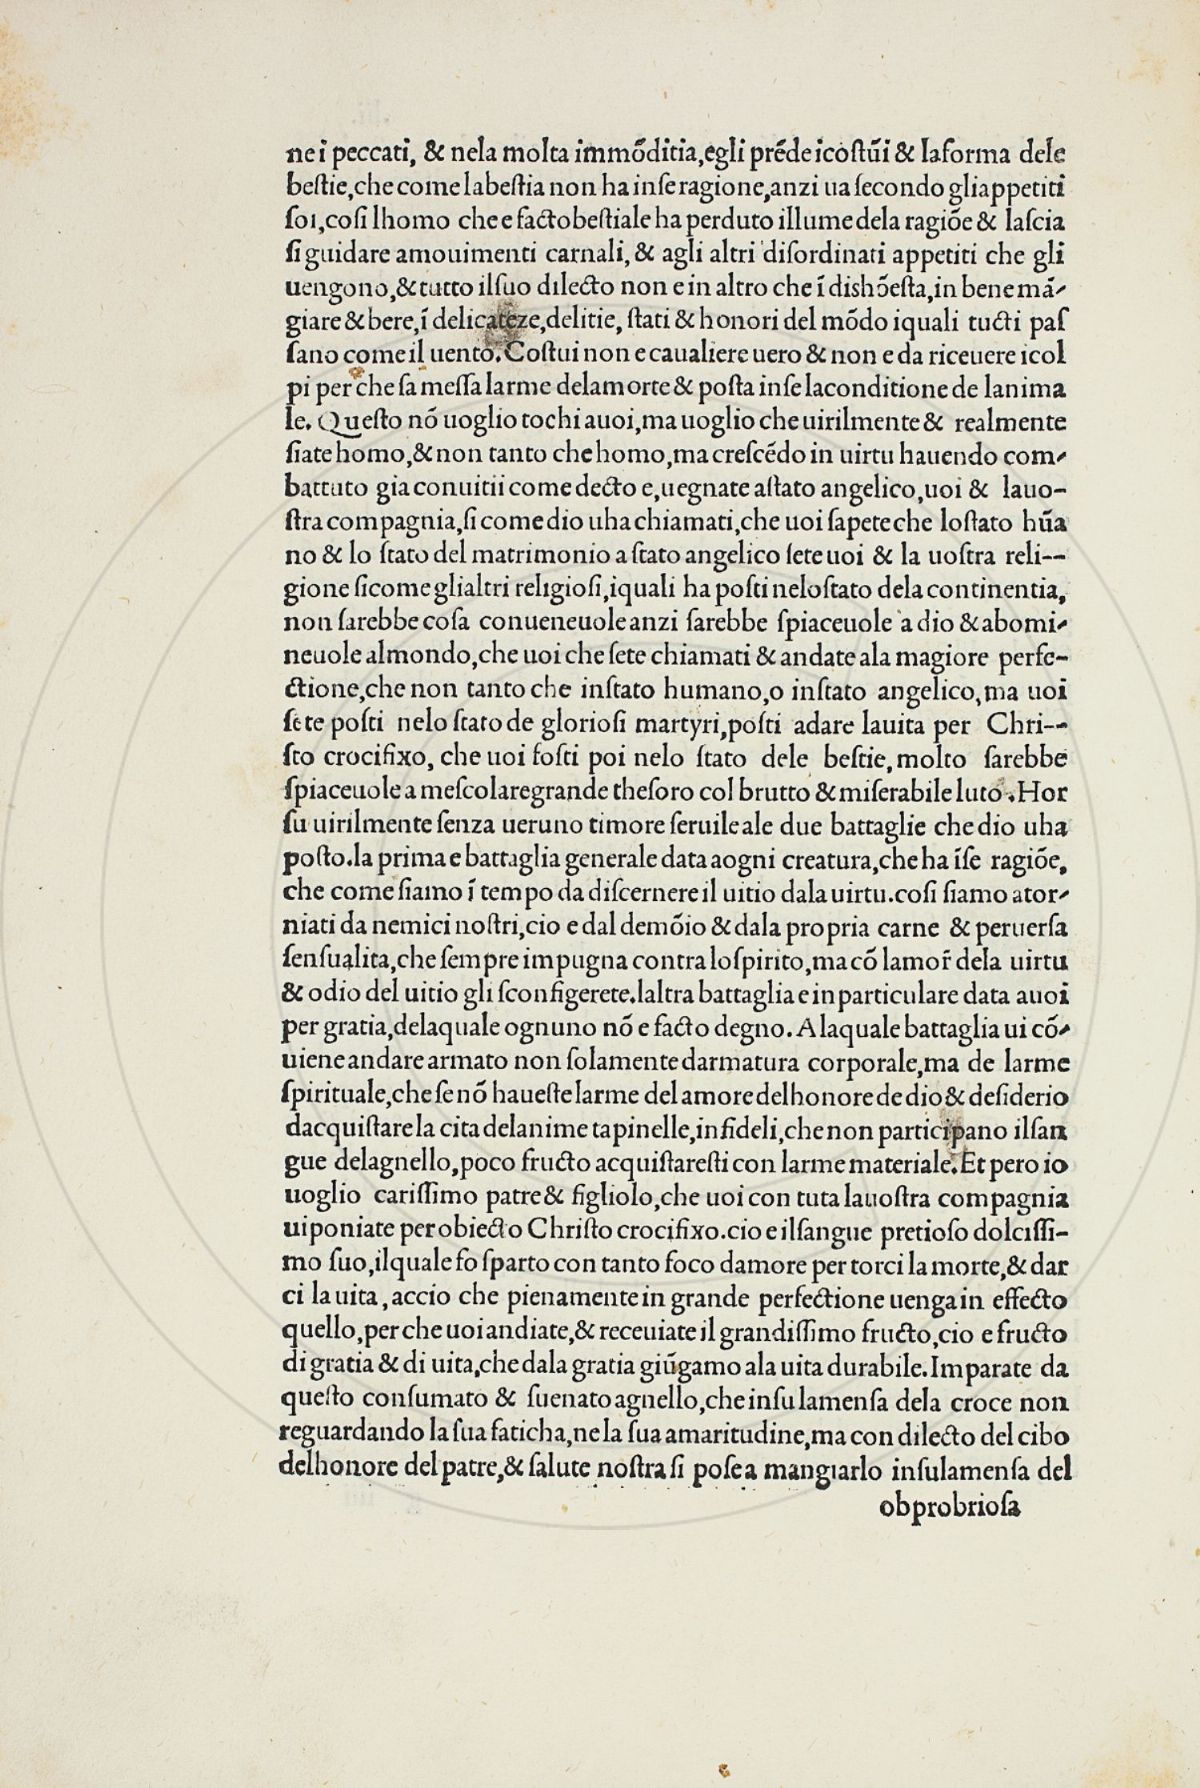 ne i peccati, & nela molta immōditia,egli prēde icoſtūi & laforma dele
beſtie,che come labeſtia non ha inſe ragione,anzi ua ſecondo gliappetiti
ſoi,coſi lhomo che e facto beſtiale ha perduto illume dela ragiōe & laſcia
ſi guidare amouimenti carnali, & agli altri diſordinati appetiti che gli
uengono,& tutto ilſuo dilecto non e in altro che ī dishōeſta,in bene mā-
giare & bere,ī delicateze,delitie, ſtati & honori del mōdo iquali tucti paſ
ſano come il uento. Coſtui non e caualiere uero & non e da riceuere icol
pi per che ſa meſſa larme delamorte & poſta inſe laconditione de lanima
le. Queſto nō uoglio tochi auoi,ma uoglio che uirilmente & realmente
ſiate homo,& non tanto che homo,ma creſcēdo in uirtu hauendo com-
battuto gia conuitii come decto e,uegnate aſtato angelico,uoi & lauo-
ſtra compagnia,ſi come dio uha chiamati,che uoi ſapete che loſtato hūa
no & lo ſtato del matrimonio a ſtato angelico ſete uoi & la uoſtra reli--
gione ſicome glialtri religioſi,iquali ha poſti neloſtato dela continentia,
non ſarebbe coſa conueneuole anzi ſarebbe ſpiaceuole a dio & abomi-
neuole almondo,che uoi che ſete chiamati & andate ala magiore perfe-
ctione,che non tanto che inſtato humano,o inſtato angelico,ma uoi
ſete poſti nelo ſtato de glorioſi martyri,poſti adare lauita per Chri--
ſto crocifixo, che uoi foſti poi nelo ſtato dele beſtie, molto ſarebbe
ſpiaceuole a meſcolare grande theſoro col brutto & miſerabile luto . Hor
ſu uirilmente ſenza ueruno timore ſeruile ale due battaglie che dio uha
poſto.la prima e battaglia generale data aogni creatura,che ha īſe ragiōe,
che come ſiamo ī tempo da diſcernere il uitio dala uirtu.coſi ſiamo ator-
niati da nemici noſtri,cio e dal demōio & dala propria carne & peruerſa
ſenſualita,che ſempre impugna contra loſpirito,ma cō lamor̄ dela uirtu
& odio del uitio gli ſconfigerete.laltra battaglia e in particulare data auoi
per gratia,delaquale ognuno nō e facto degno. Alaquale battaglia ui cō-
uiene andare armato non ſolamente darmatura corporale,ma de larme
ſpirituale,che ſe nō haueſte larme del amore delhonore de dio & deſiderio
dacquiſtare la cita delanime tapinelle,infideli,che non participano ilſan
gue delagnello,poco fructo acquiſtareſti con larme materiale. Et pero io
uoglio cariſſimo patre & figliolo,che uoi con tuta lauoſtra compagnia
uiponiate per obiecto Chriſto crocifixo.cio e ilſangue pretioſo dolciſſi-
mo ſuo,ilquale fo ſparto con tanto foco damore per torci la morte,& dar
ci la uita, accio che pienamente in grande perfectione uenga in effecto
quello,per che uoi andiate,& receuiate il grandiſſimo fructo,cio e fructo
di gratia & di uita,che dala gratia giūgamo ala uita durabile.Imparate da
queſto conſumato & ſuenato agnello,che inſu lamenſa dela croce non
reguardando la ſua faticha,ne la ſua amaritudine,ma con dilecto del cibo
delhonore del patre,& ſalute noſtra ſi poſe a mangiarlo inſulamenſa del
obprobrioſa